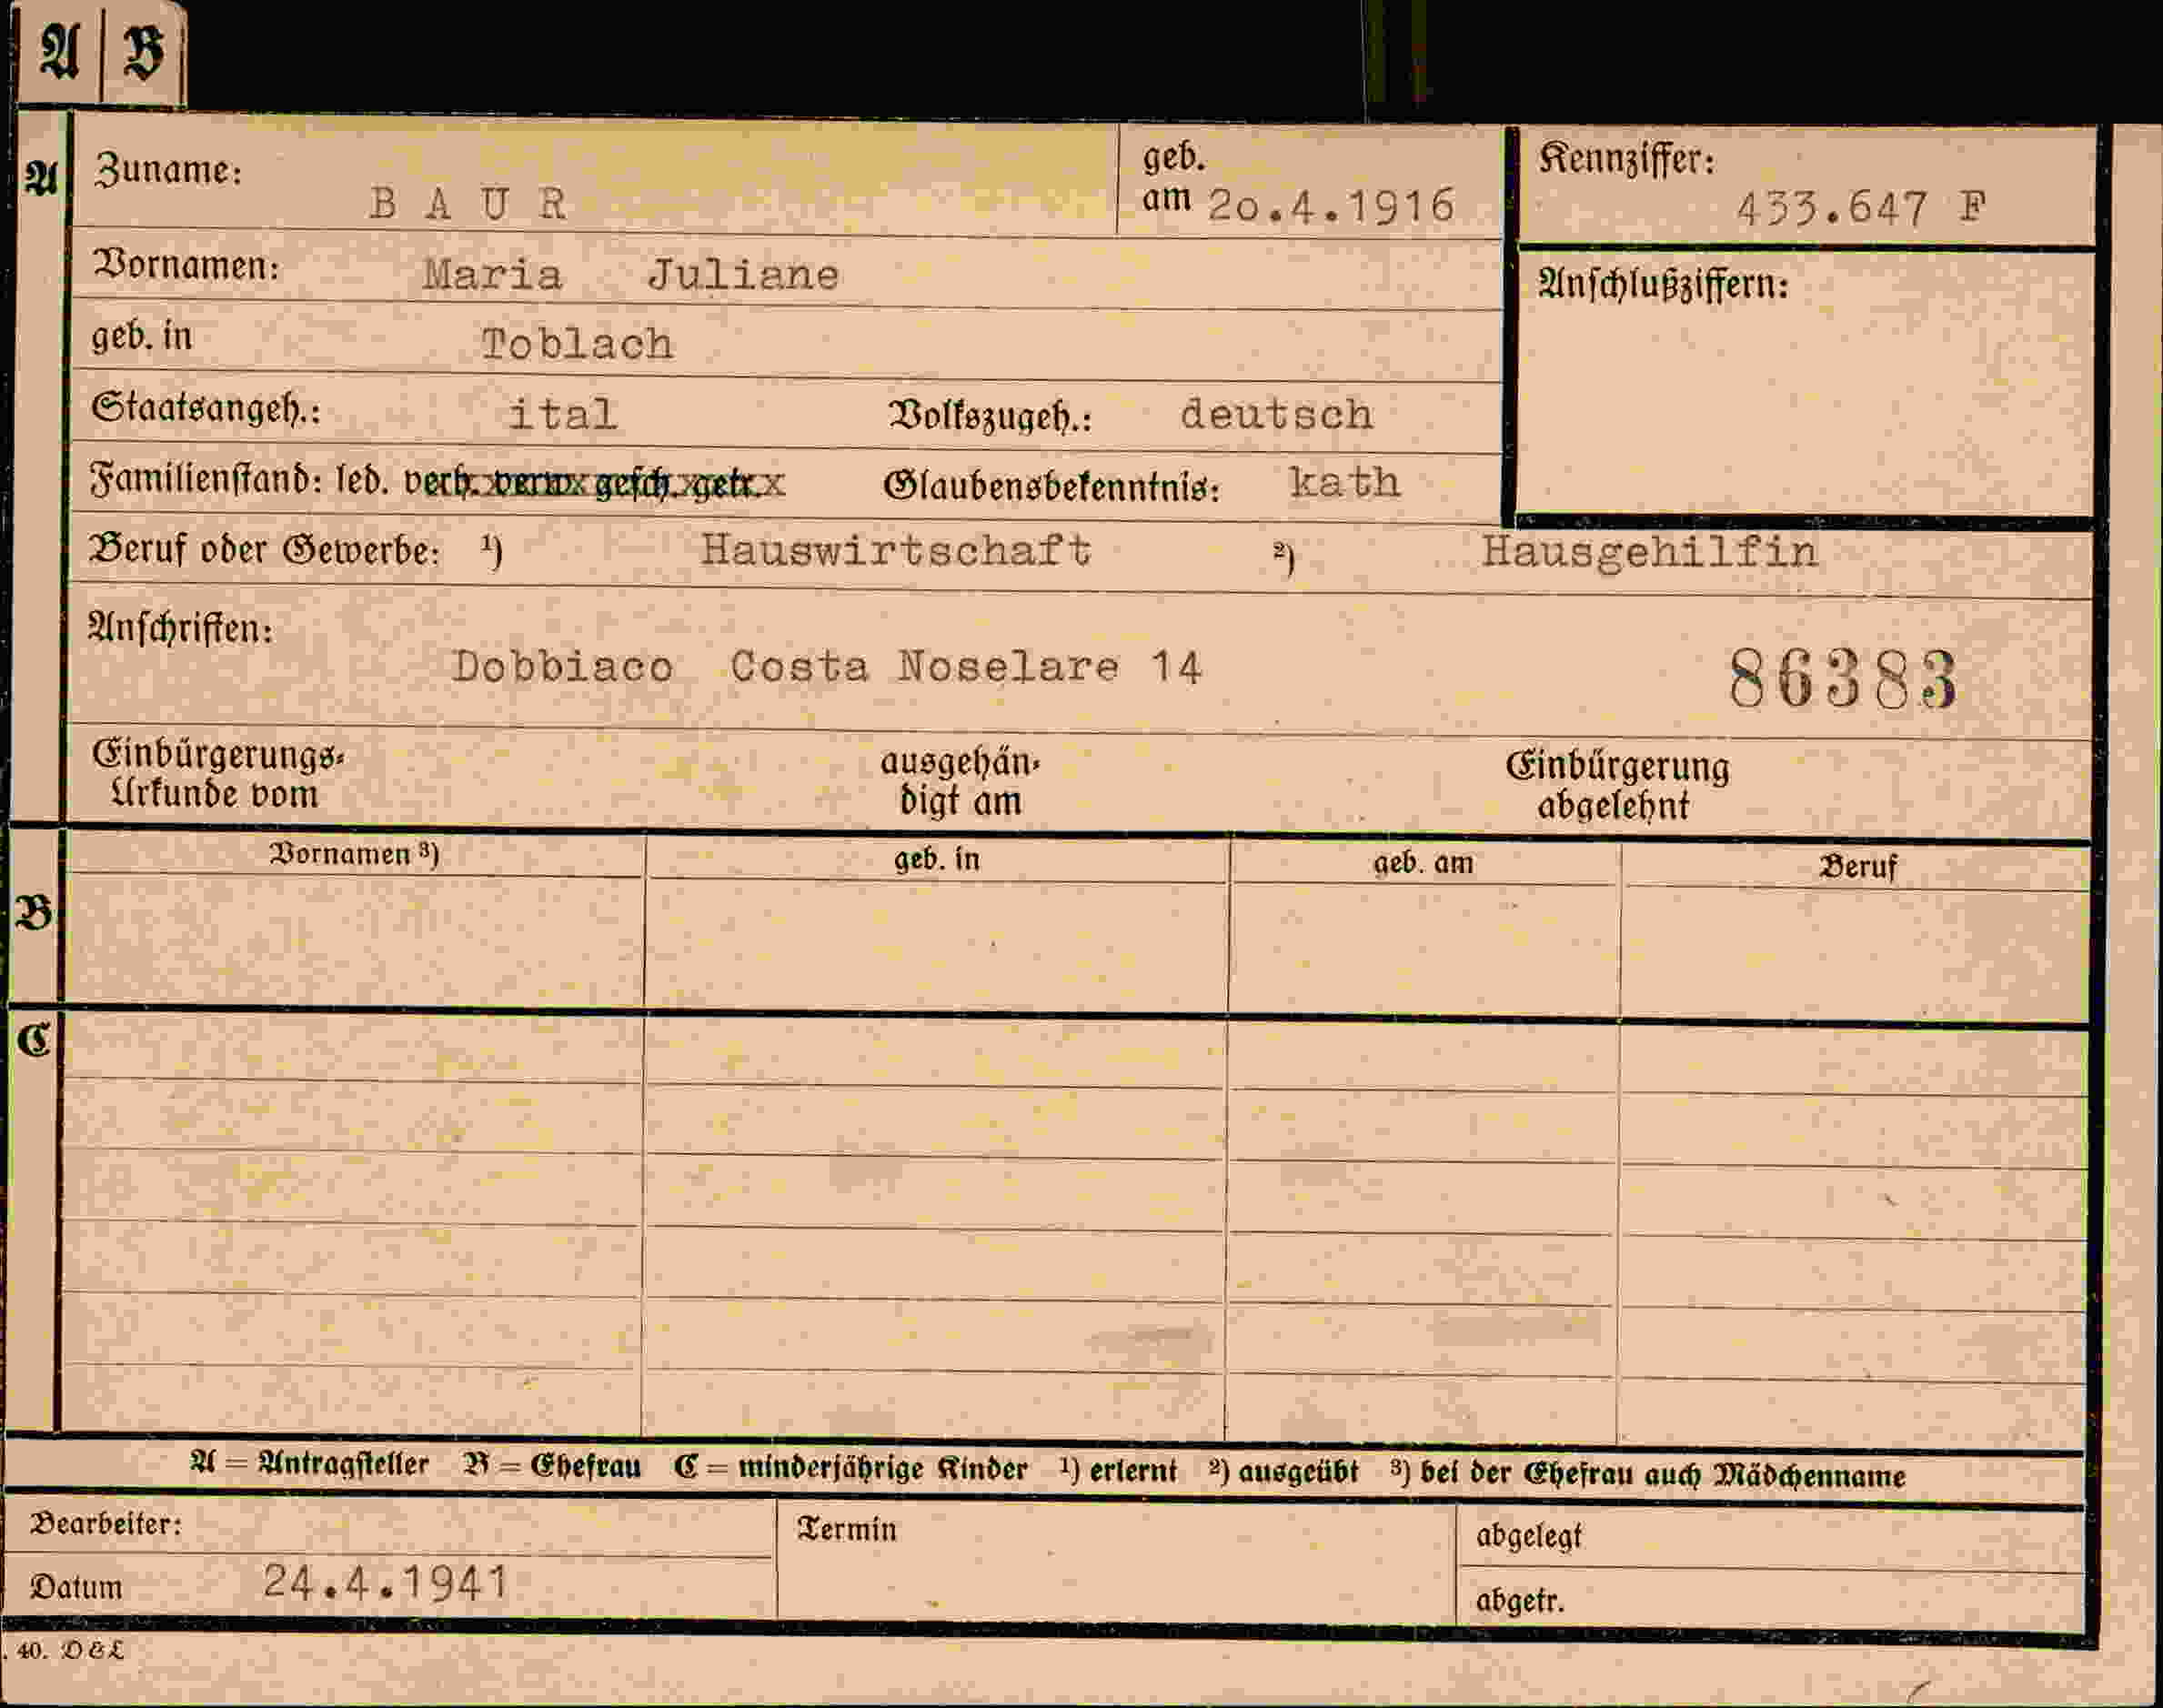 A B
A Zuname: BAUR geb. am 20.4.1916 Kennziffer: 433.647 F
Vornamen: Maria Juliane Anschlußziffern:
geb. in Toblach
Staatsangeh.: ital Volkszugeh.: deutsch
Familienstand: led. verh. verw. gesch. getr. Glaubensbekenntnis: kath
Beruf oder Gewerbe: ¹) Hauswirtschaft ²) Hausgehilfin
Anschriften:
Dobbiaco Costa Noselare 14 86383
Einbürgerungs-
Urkunde vom
ausgehän-
digt am
Einbürgerung
abgelehnt
B Vornamen ³) geb. in geb. am Beruf
C
A = Antragsteller B = Ehefrau C = minderjährige Kinder ¹) erlernt ²) ausgeübt ³) bei der Ehefrau auch Mädchenname
Bearbeiter: Termin abgelegt
Datum 24.4.1941 abgetr.
. 40. D&L